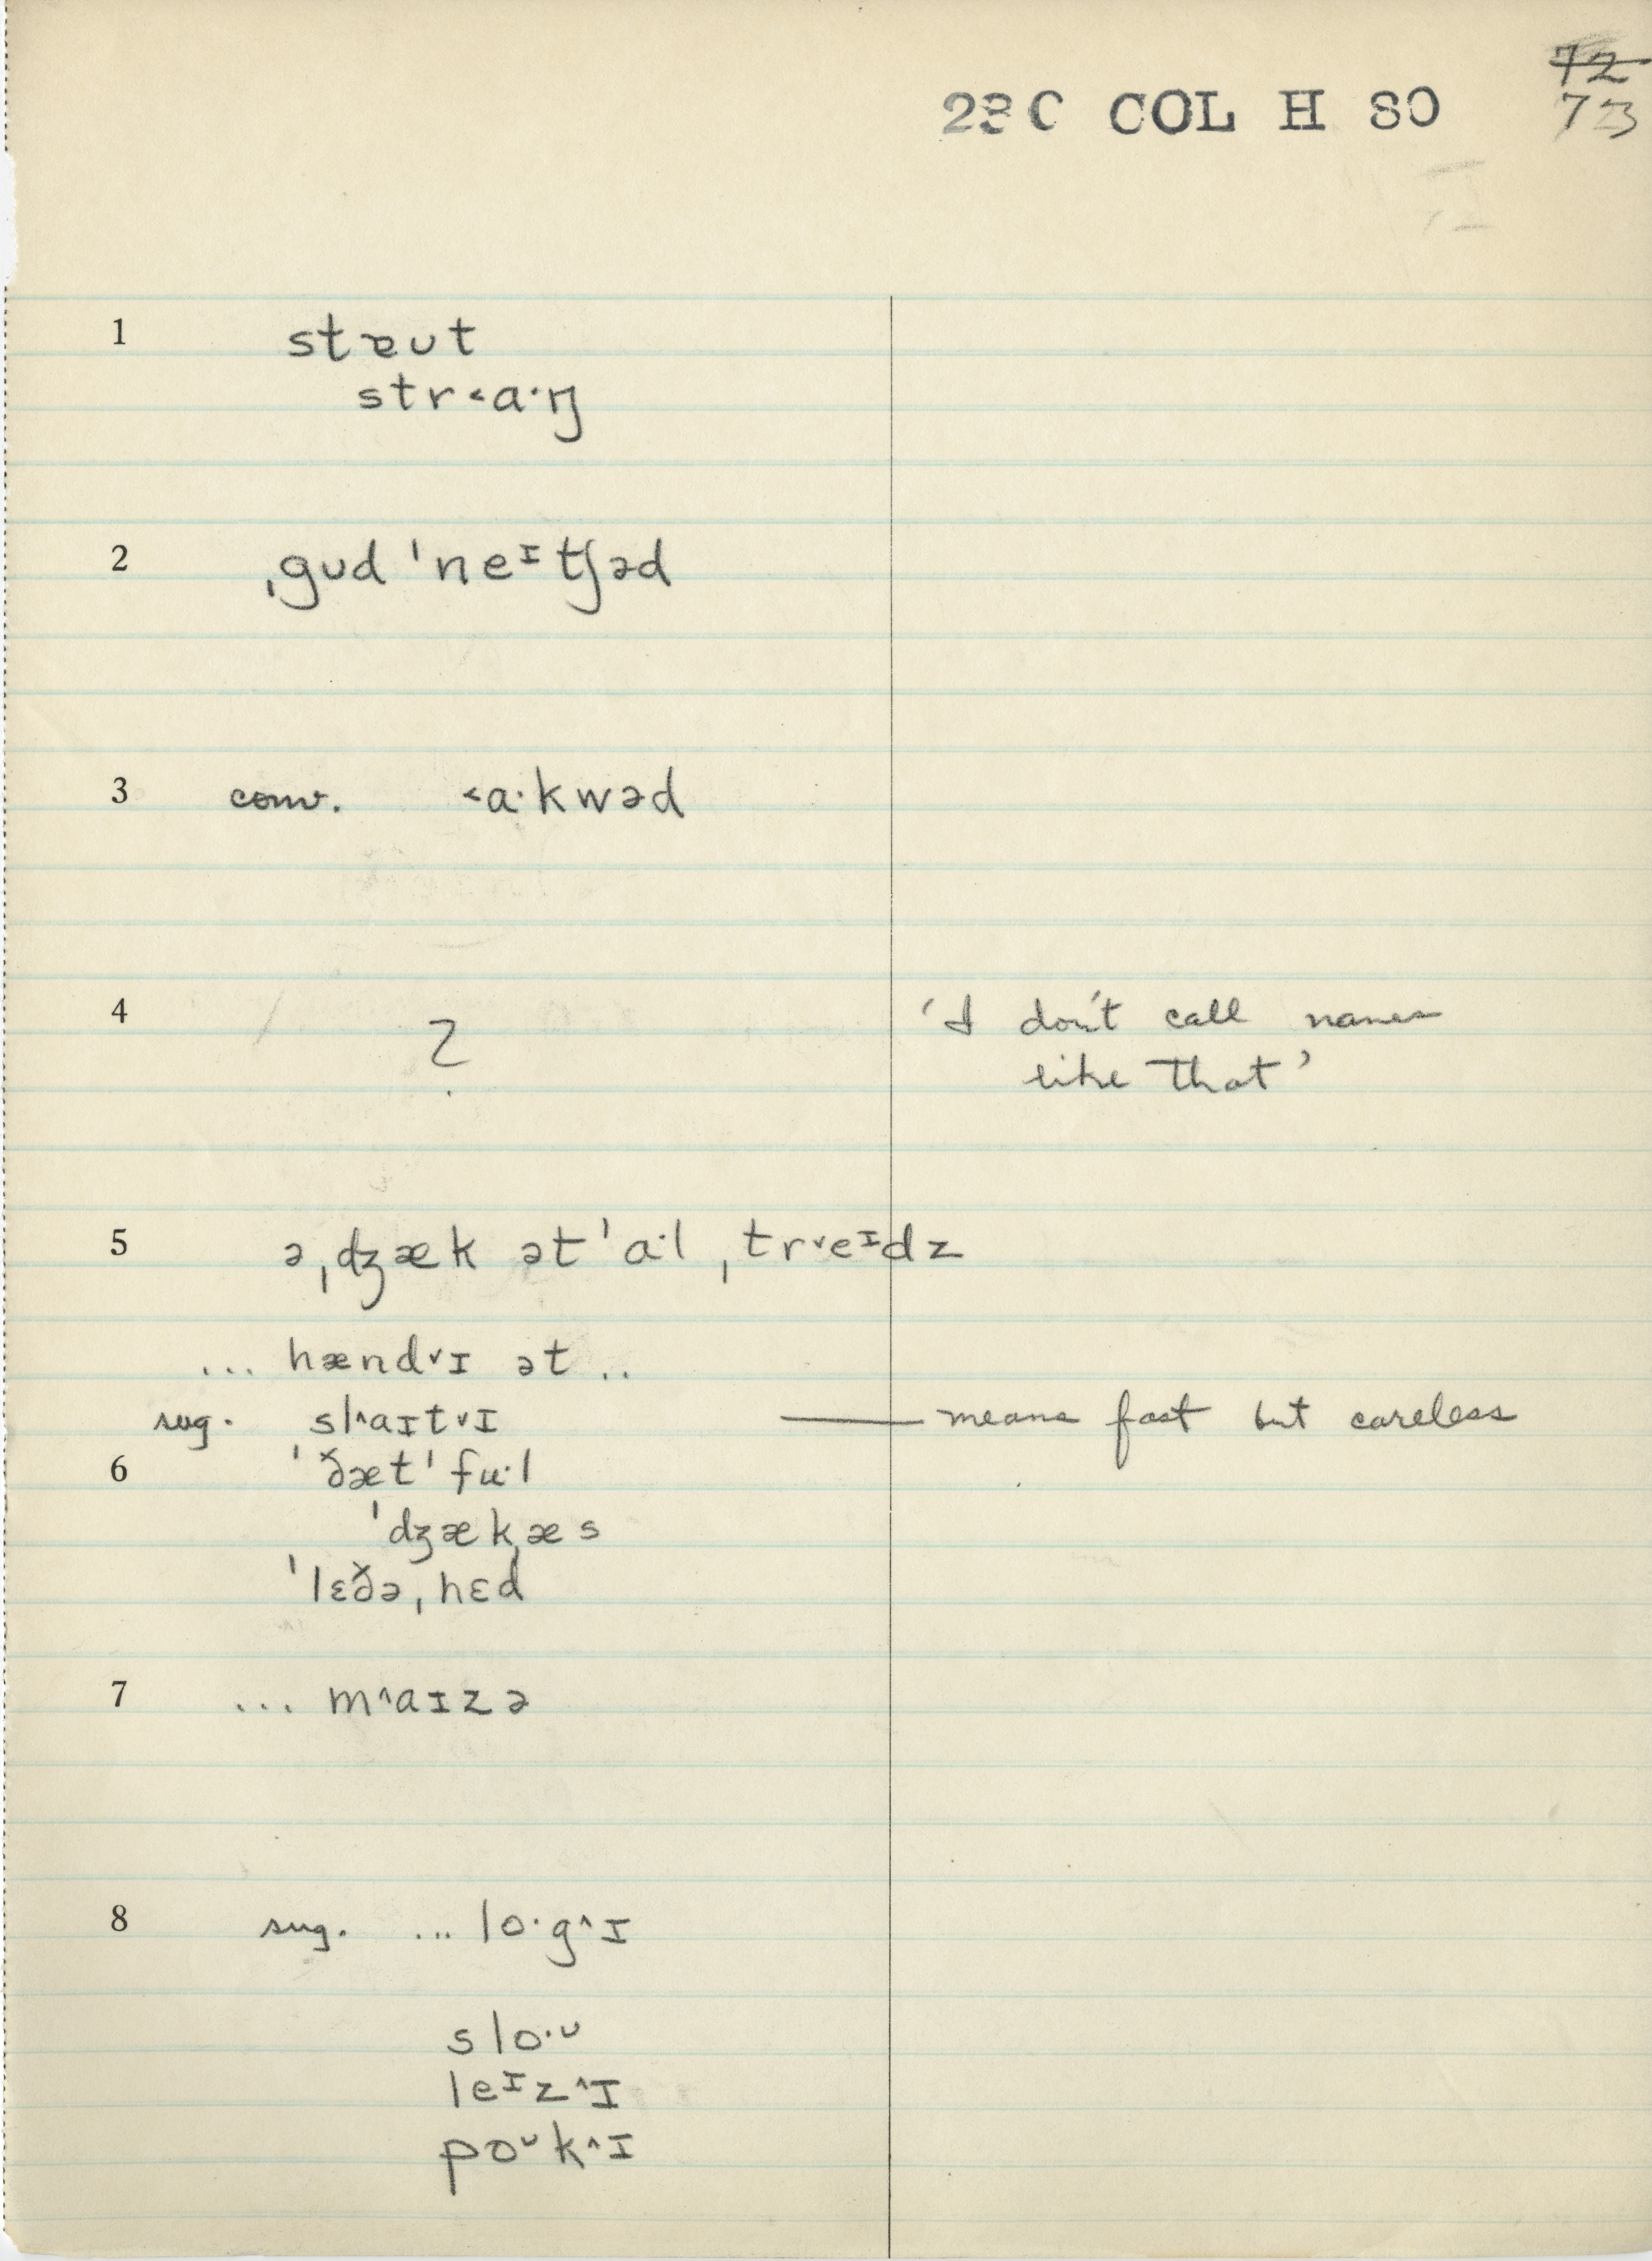 72
23C COL H 80 73
1 stɐʊt
str˂a·ŋ
2 ˌgʊd ˈneᶦtʃəd
3 conv. ˂a·kwəd
4 ? 'I don't call names
like that'
5 ə ˌdʒæk ət ˈa·l ˌtr˅eᶦdz
... hænd˅ɪ ət ..
sug. sl˄aɪt˅ɪ —— means fast but careless
6 ˈðæt ˈfu·l
ˈdʒækˌæs
ˈlɛðəˌhɛd
7 ... m˄aɪzə
8 sug. ... lo·g˄ɪ
slo·ᶷ
leᶦz˄ɪ
poᶷk˄ɪ